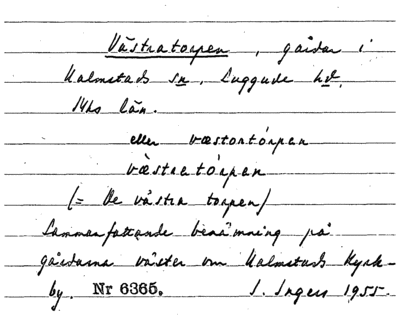 Västratorpen, gårdar i
Kalmstads sn, Luggude hd,
Mhs län.
eller væstortórpen
væstratórpen
(= De västra torpen)
Sammanfattande benämning på
gårdarna väster om Kalmstads Kyrk-
by. Nr 6365. I. Ingers 1955.